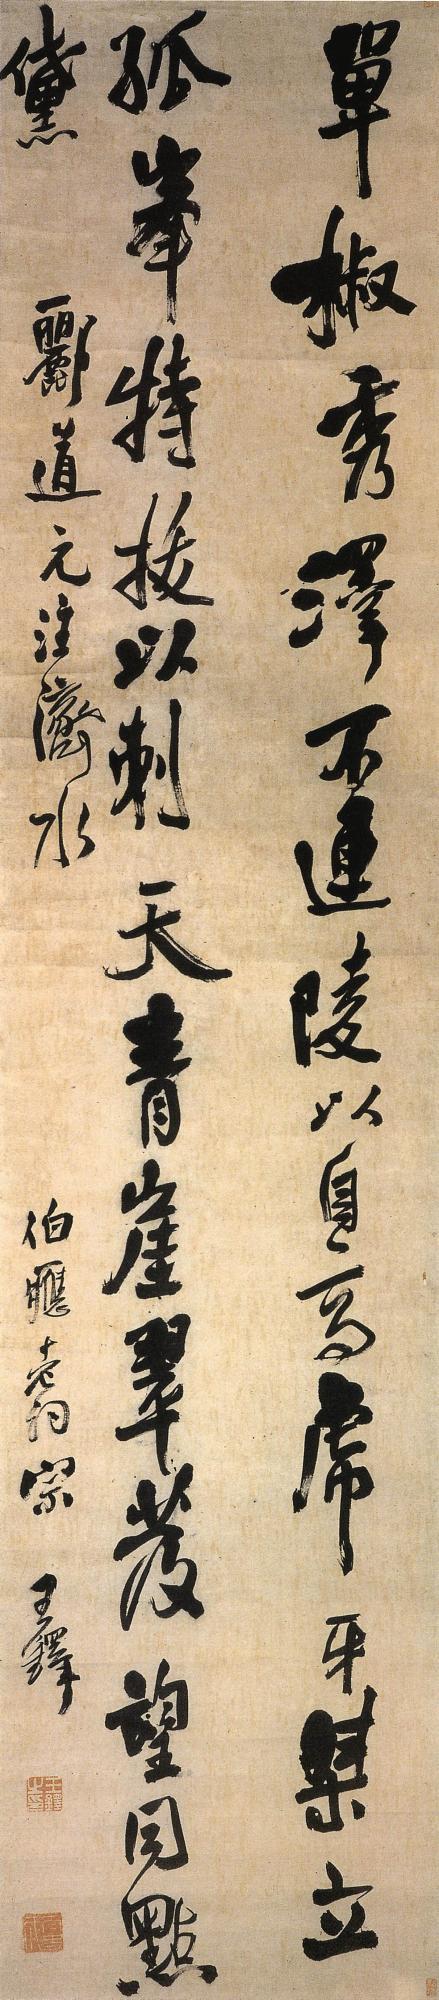 單椒秀澤不連陵以自高虎牙桀立
孤峯特拔以刺天青崖翠發望同點
黛 酈道元注濼水 伯應老詞宗 王鐸